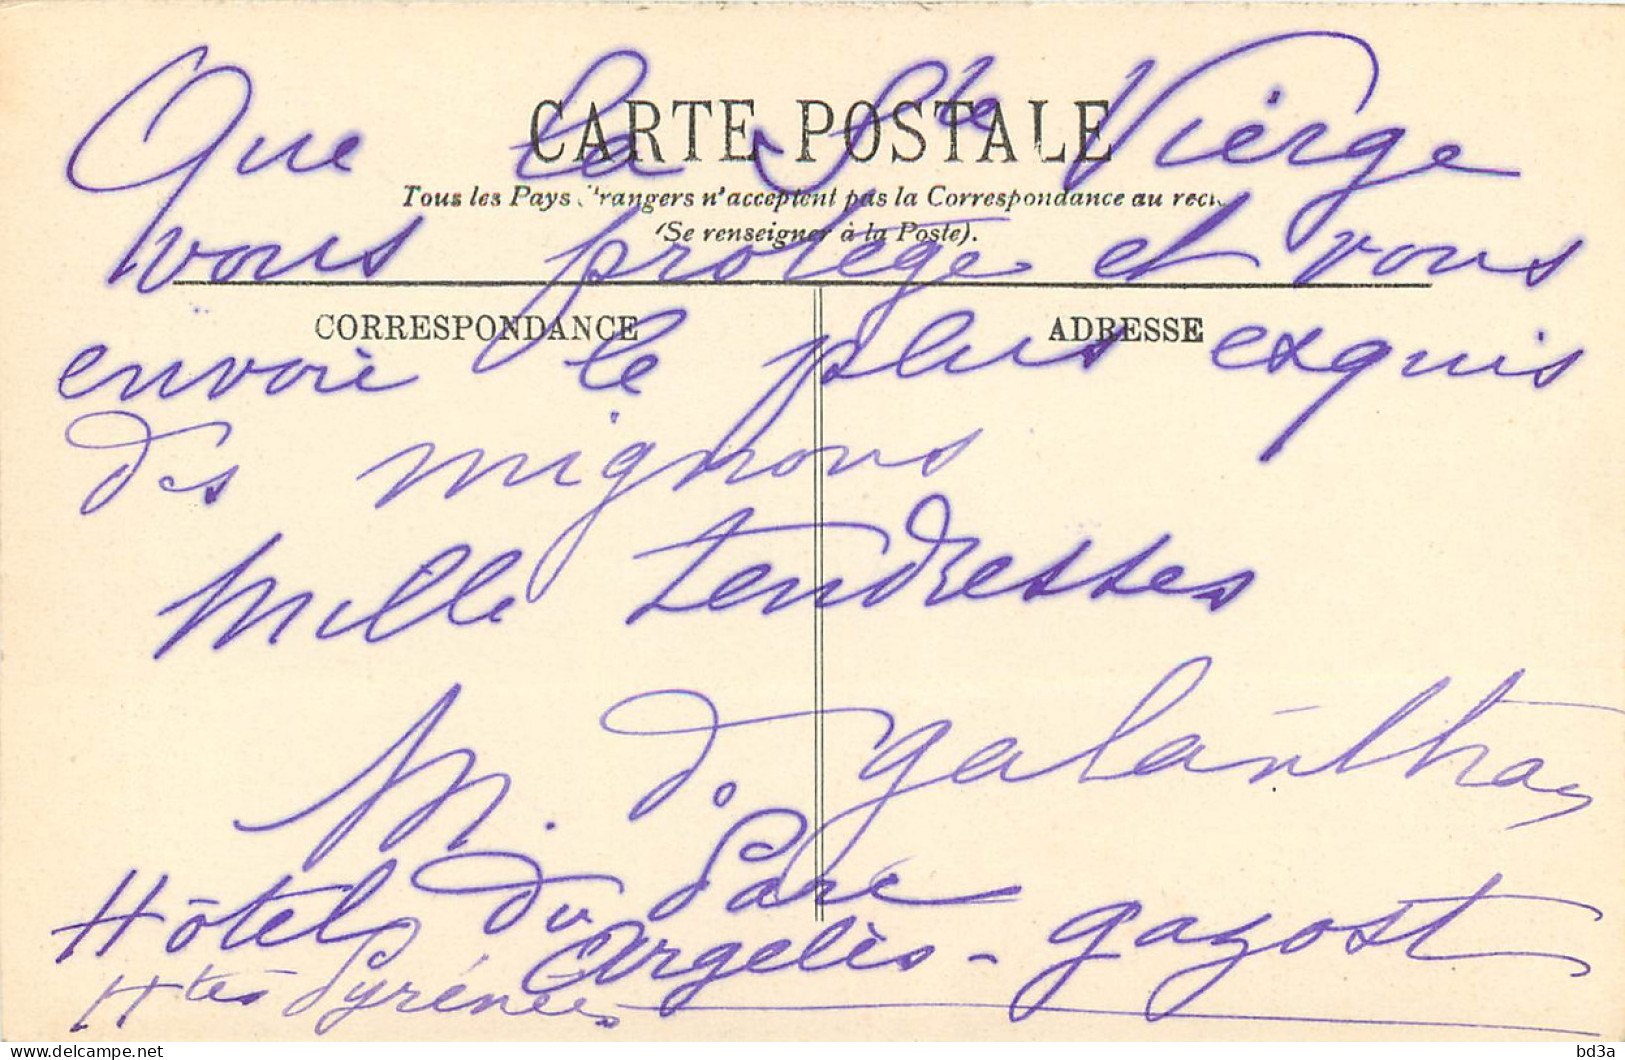 Que la Ste Vierge
CARTE POSTALE
Tous les Pays Étrangers n'acceptent pas la Correspondance au recto
(Se renseigner à la Poste).
vous protège et vous
CORRESPONDANCE
ADRESSE
envoie le plus exquis
des mignons
Mille tendresses
M. d galántha
Hôtel du Parc
Argelès-gazost
Htes Pyrénées
bd3a